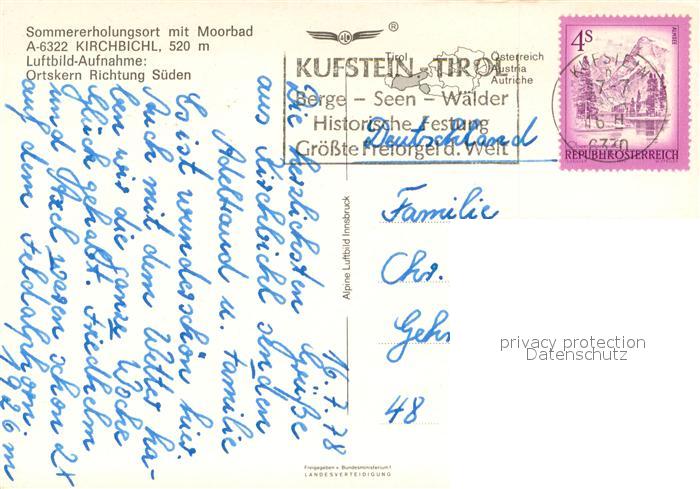 Sommererholungsort mit Moorbad
A-6322 KIRCHBICHL, 520 m
Luftbild-Aufnahme:
Ortskern Richtung Süden
®
Tirol
Österreich
Austria
Autriche
KUFSTEIN-TIROL
Berge – Seen – Wälder
Historische Festung
Größte Freiorgel d. Welt
4S
ALMSEE
REPUBLIK ÖSTERREICH
KUFSTEIN
6330
16.7.78
Die herzlichsten Grüße
aus Kirchbichl senden
Adeltraud u. Familie
Es ist wunderschön hier
Auch mit dem Wetter ha-
ben wir die ganze Woche
Glück gehabt. Friedhelm
und Axel waren schon 2x
auf dem Feldalphorn
1926 m
Alpine Luftbild Innsbruck
Deutschland
Familie
Chr.
Gehr
48
privacy protection
Datenschutz
Freigegeben v. Bundesministerium f.
LANDESVERTEIDIGUNG